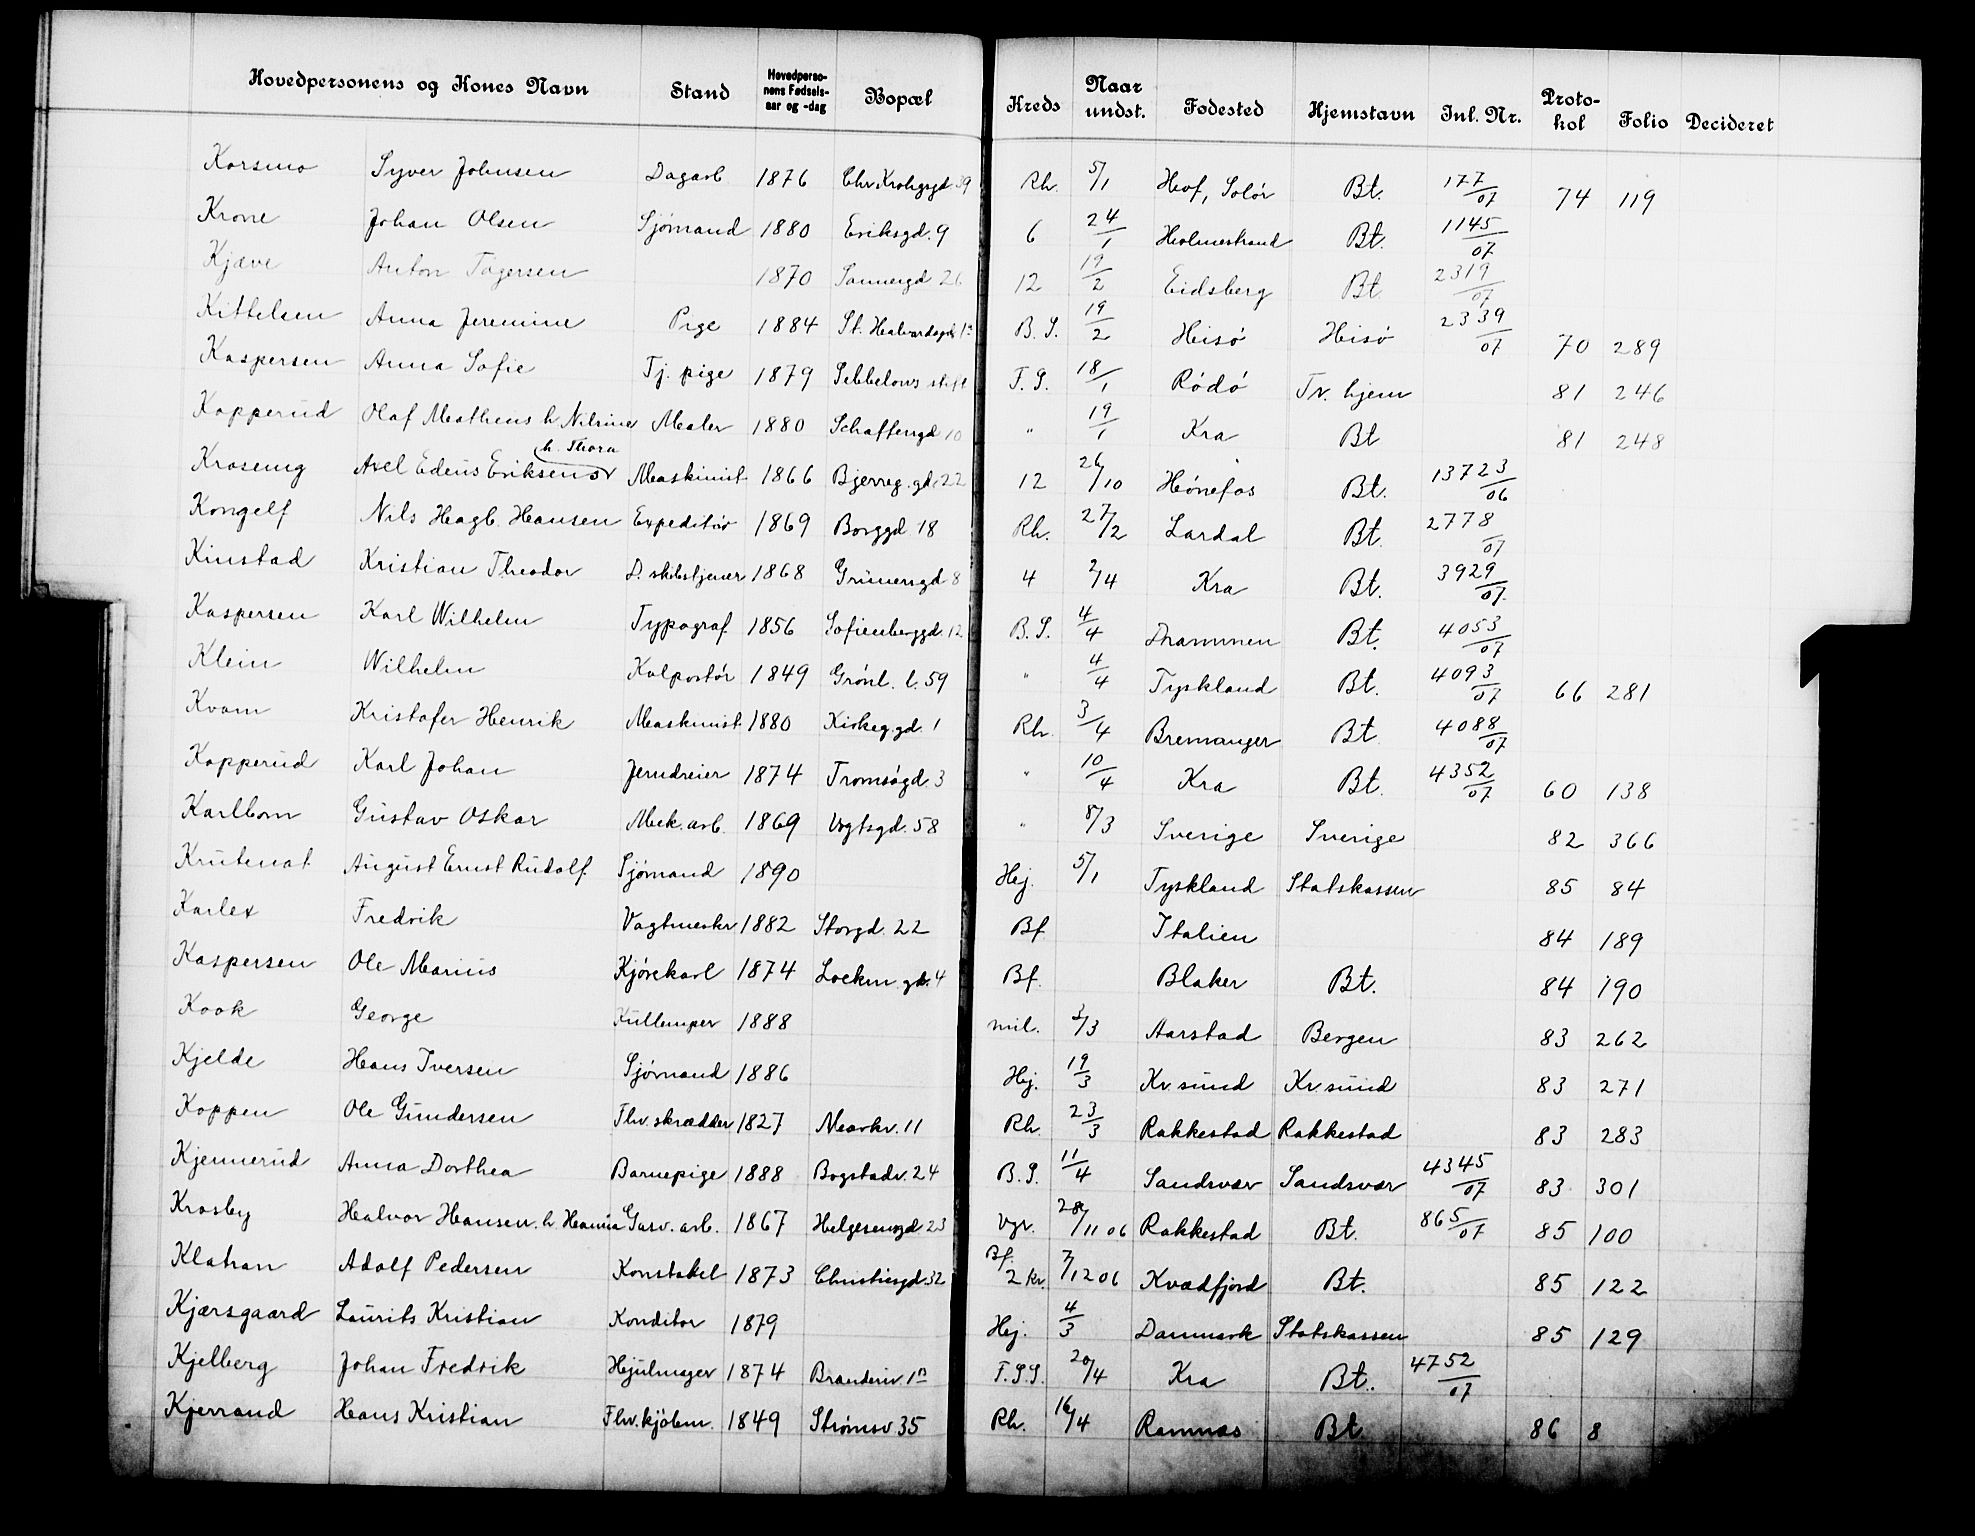 Hovedpersonens og Kones Navn Stand Hovedpersonens Fødselsaar og -dag Bopæl Kreds Naar undst. Fødested Hjemstavn Inl. Nr. Protokol Folio Decideret
Korsmo Syver Johnsen Dagarb 1876 Chr. Krohgsgd 39 Rh. 5/1 Hof, Solør Bt. 177/07 74 119
Krone Johan Olsen Sjømand 1880 Eriksgd. 9 6 24/1 Holmestrand Bt. 1145/07
Kjæve Anton Tagersen 1870 Sannergd 26 12 19/2 Eidsberg Bt 2319/07
Kittelsen Anna Jeremine Pige 1884 St. Halvardsgd 1 B. S. 19/2 Heisø Heisø 2339/07 70 289
Kaspersen Anna Sofie Tj. pige 1879 Sebbelows stift F. S. 18/1 Rødø Tv. hjem 81 246
Kopperud Olaf Matheus h Nilsine Maler 1880 Schaftengd 10 " 19/1 Kra Bt 81 248
h. Thora
Kroseng Axel Edeus Eriksen Maskinist 1866 Bjerreg. gd. 22 12 26/10 Hønefos Bt. 13723/06
Kongelf Nils Hagb. Hansen Expeditør 1869 Borggd 18 Rh. 27/2 Lardal Bt. 2778/07
Kinstad Kristian Theodor D. skibstjener 1868 Grünersgd 8 4 2/4 Kra Bt. 3929/07.
Kaspersen Karl Wilhelm Typograf 1856 Sofienberggd. 12 B. S. 4/4 Drammen Bt. 4053/07
Klein Wilhelm Kolportør 1849 Grønl. l. 59 " 4/4 Tyskland Bt. 4093/07 66 281
Kvam Kristofer Henrik Maskinist 1880 Kirkeg. gd. 1 Rh. 3/4 Bremanger Bt 4088/07
Kopperud Karl Johan Jerndreier 1874 Tromsøgd. 3 " 10/4 Kra Bt. 4352/07 60 138
Karlbom Gustav Oskar Mek. arb. 1869 Vogtsgd. 58 " 8/3 Sverige Sverige 82 366
Krutenat August Ernst Rudolf Sjømand 1890 Hej. 5/1 Tyskland Statskassen 85 84
Karlex Fredrik Vagtmester 1882 Storgd. 22 Bf Italien 84 189
Kaspersen Ole Marius Kjørekarl 1874 Lockm. gd. 4 Bf. Blaker Bt. 84 190
Kook George Kullemper 1888 mil. 2/3 Aarstad Bergen 83 262
Kjelde Hans Iversen Sjømand 1886 Hej. 19/3 Kr. sund Kr. sund 83 271
Koppen Ole Gundersen Fhv. skrædder 1827 Markv. 11 Rh. 23/3 Rakkestad Rakkestad 83 283
Kjennerud Anna Dorthea Barnepige 1888 Bogstadv. 24 B. S. 11/4 Sandsvær Sandsvær 4345/07 83 301
Krosby Halvor Hansen. h. Hanna Garv. arb. 1867 Helgesensgd 23 Vgr. 28/11 06 Rakkestad Bt. 865/07 85 100
Klahan Adolf Pedersen Konstabel 1873 Christiesgd. 32 Bf. 2 kr. 7/12 06 Kvædfjord Bt. 85 122
Kjærsgaard Laurits Kristian Konditor 1879 Hej. 4/3 Danmark Statskassen 85 129
Kjelberg Johan Fredrik Hjulmager 1874 Branderiv 1B F. S. S. 20/4 Kra Bt. 4752/07
Kjerrand Hans Kristian Fhv. kjøbm. 1849 Strømsv. 35 Rh. 16/4 Ramnæs Bt 86 8